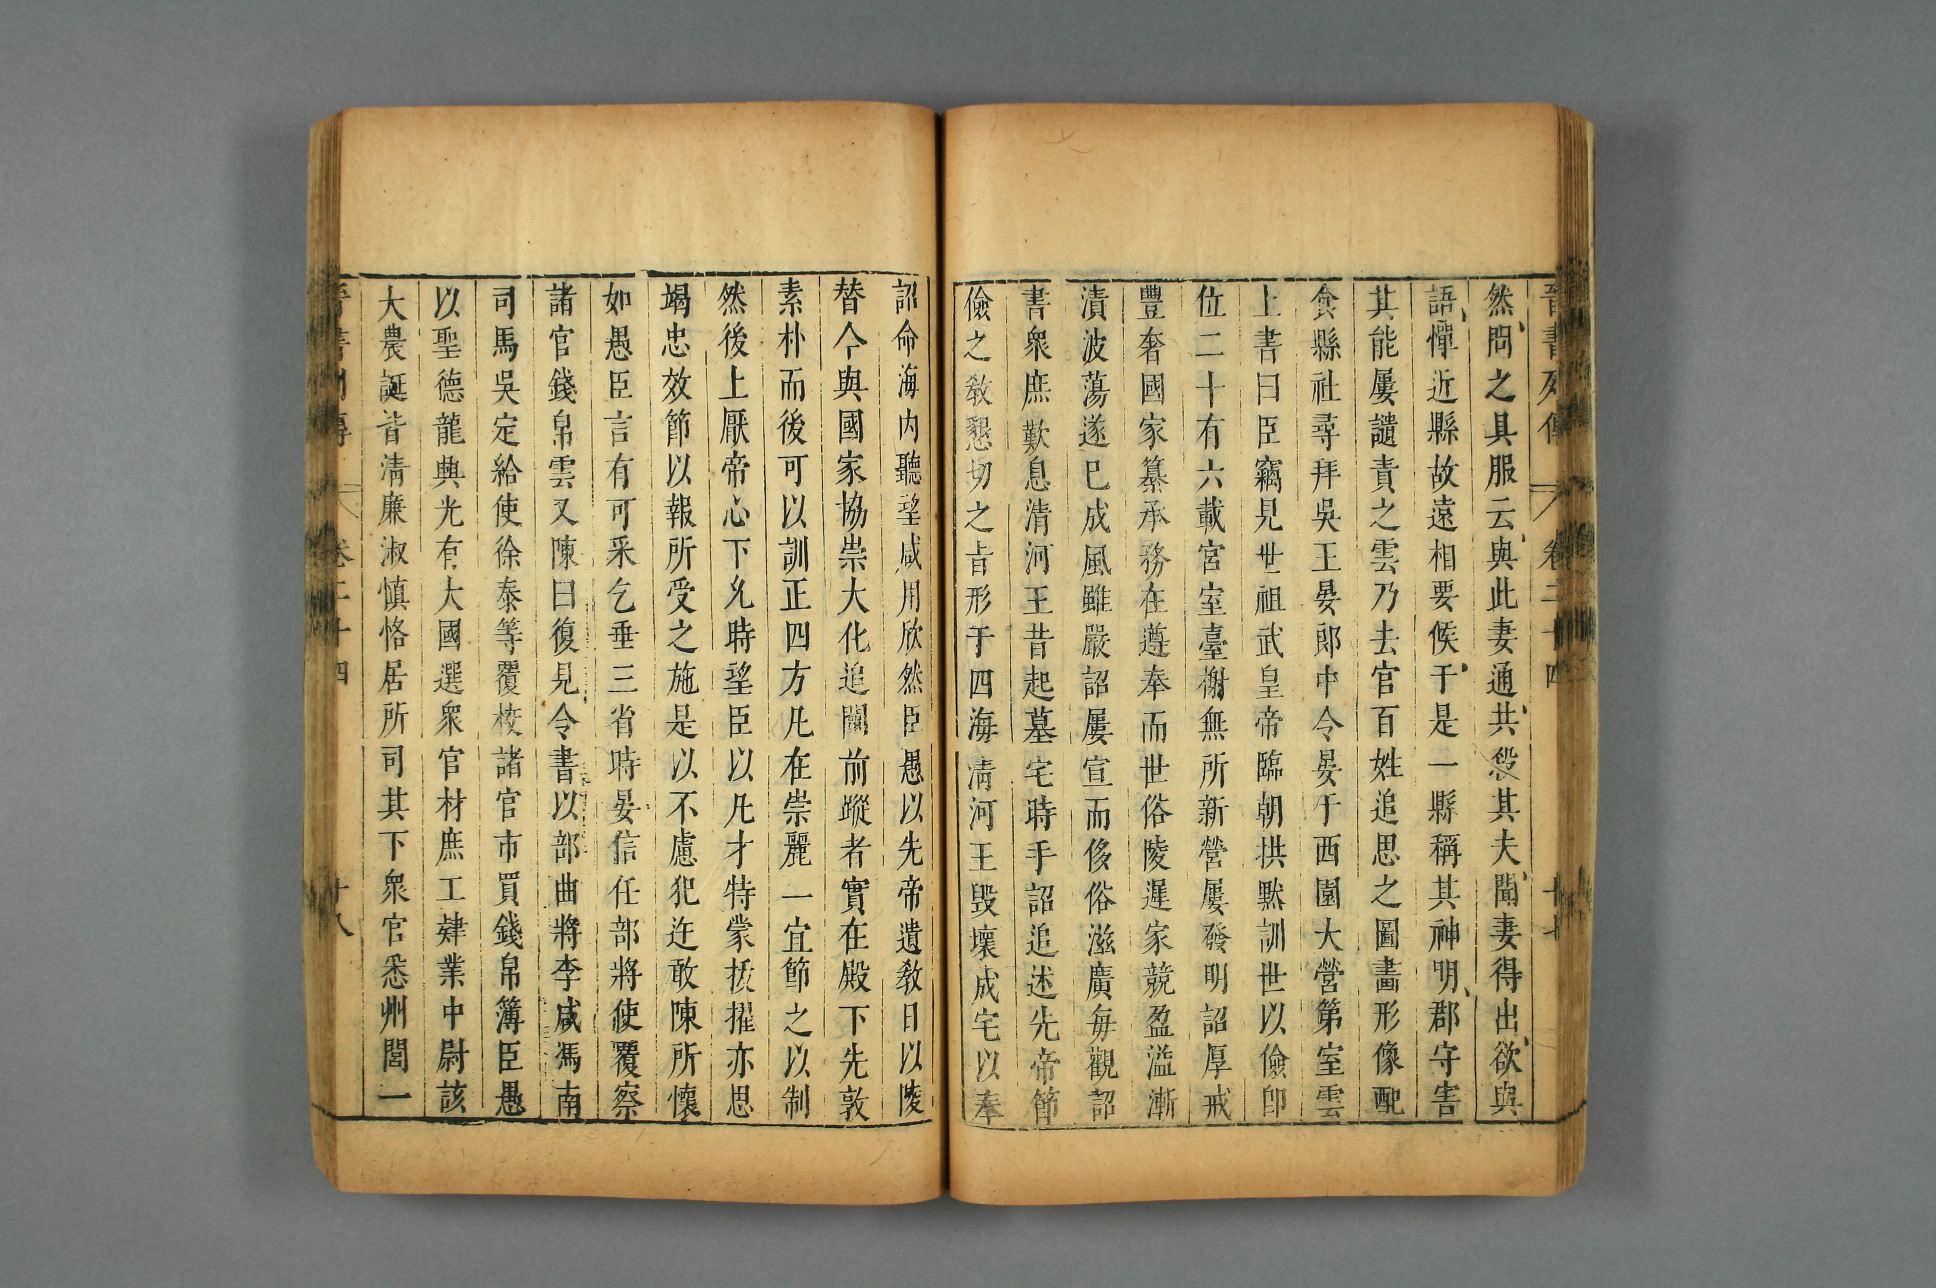 晉書列傳 卷二十四 十七
然問之具服云與此妻通共殺其夫聞妻得出欲與
語憚近縣故遠相要候于是一縣稱其神明郡守害
其能屢譴責之雲乃去官百姓追思之圖畫形像配
食縣社尋拜吳王晏郎中令晏于西園大營第室雲
上書曰臣竊見世祖武皇帝臨朝拱默訓世以儉即
位二十有六載宮室臺榭無所新營屢發明詔厚戒
豐奢國家纂承務在遵奉而世俗陵遲家競盈溢漸
漬波蕩遂已成風雖嚴詔屢宣而侈俗滋廣每觀詔
書衆庶歎息清河王昔起墓宅時手詔追述先帝節
儉之敎懇切之旨形于四海清河王毀壞成宅以奉
詔命海內聽望咸用欣然臣愚以先帝遺敎日以陵
替今與國家協崇大化追闡前蹤者實在殿下先敦
素朴而後可以訓正四方凡在崇麗一宜節之以制
然後上厭帝心下允時望臣以凡才特蒙拔擢亦思
竭忠效節以報所受之施是以不慮犯迕敢陳所懷
如愚臣言有可采乞垂三省時晏信任部將使覆察
諸官錢帛雲又陳曰復見令書以部曲將李咸馮南
司馬吳定給使徐泰等覆校諸官市買錢帛簿臣愚
以聖德龍興光有大國選衆官材庶工肄業中尉該
大農誕皆清廉淑慎恪居所司其下衆官悉州閭一
晉書列傳 卷二十四 十八